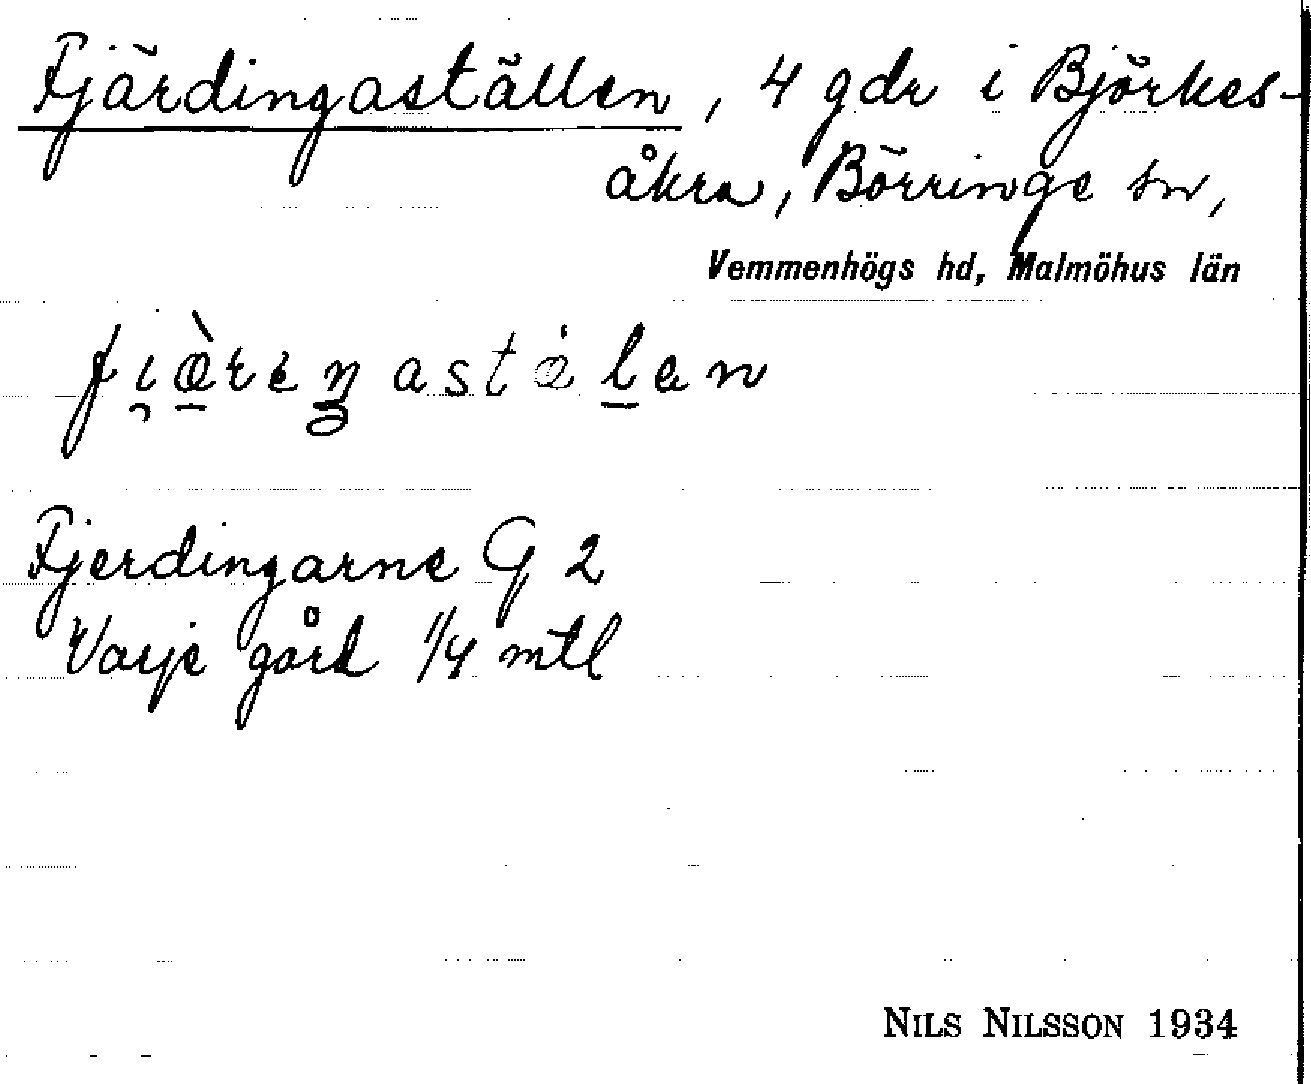 Fjärdingaställen, 4 gdr i Björkes-
åkra, Börringe sn,
Vemmenhögs hd, Malmöhus län
fi̯æ̀reŋastǽlen
Fjerdingarne G 2
Varje gård 1/4 mtl
NILS NILSSON 1934